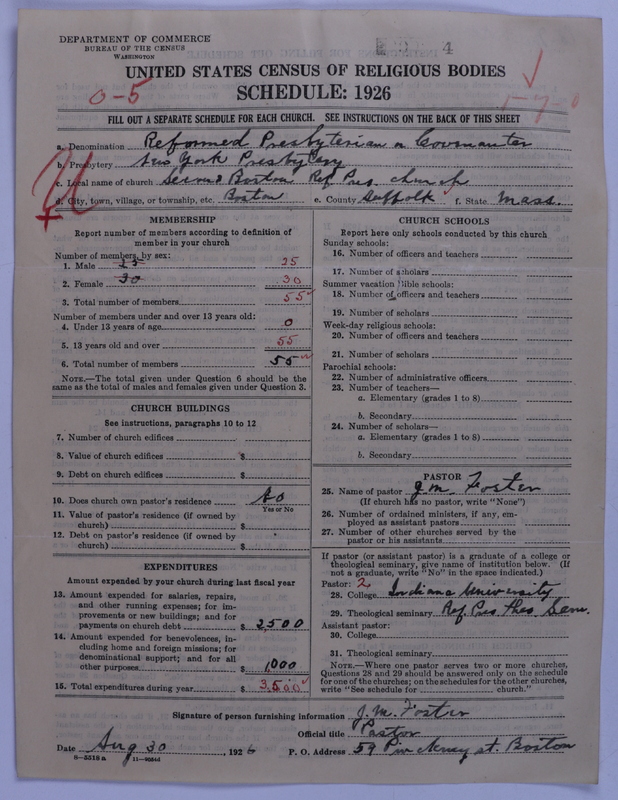 DEPARTMENT OF COMMERCE
BUREAU OF THE CENSUS
WASHINGTON
4
UNITED STATES CENSUS OF RELIGIOUS BODIES
SCHEDULE: 1926
0-5
1-7-0
FILL OUT A SEPARATE SCHEDULE FOR EACH CHURCH. SEE INSTRUCTIONS ON THE BACK OF THIS SHEET
a. Denomination Reformed Presbyterian or Covenanter
b. Presbytery New York Presbytery
c. Local name of church Second Boston Ref Pres. church
d. City, town, village, or township, etc. Boston e. County Suffolk f. State Mass.
MEMBERSHIP
Report number of members according to definition of member in your church
Number of members, by sex:
1. Male 25 25
2. Female 30 30
3. Total number of members 55
Number of members under and over 13 years old:
4. Under 13 years of age 0
5. 13 years old and over 55
6. Total number of members 55
NOTE.—The total given under Question 6 should be the
same as the total of males and females given under Question 3.
CHURCH BUILDINGS
See instructions, paragraphs 10 to 12
7. Number of church edifices
8. Value of church edifices $
9. Debt on church edifices $
10. Does church own pastor's residence No
Yes or No
11. Value of pastor's residence (if owned by
church) $
12. Debt on pastor's residence (if owned by
church) $
EXPENDITURES
Amount expended by your church during last fiscal year
13. Amount expended for salaries, repairs,
and other running expenses; for im-
provements or new buildings; and for
payments on church debt $ 2500
14. Amount expended for benevolences, in-
cluding home and foreign missions; for
denominational support; and for all
other purposes $ 1,000
15. Total expenditures during year $ 3,500
CHURCH SCHOOLS
Report here only schools conducted by this church
Sunday schools:
16. Number of officers and teachers
17. Number of scholars
Summer vacation Bible schools:
18. Number of officers and teachers
19. Number of scholars
Week-day religious schools:
20. Number of officers and teachers
21. Number of scholars
Parochial schools:
22. Number of administrative officers
23. Number of teachers—
a. Elementary (grades 1 to 8)
b. Secondary
24. Number of scholars—
a. Elementary (grades 1 to 8)
b. Secondary
PASTOR
25. Name of pastor J. M. Foster
(If church has no pastor, write "None")
26. Number of ordained ministers, if any, em-
ployed as assistant pastors
27. Number of other churches served by the
pastor or his assistants
If pastor (or assistant pastor) is a graduate of a college or
theological seminary, give name of institution below. (If
not a graduate, write "No" in the space indicated.)
Pastor: 2
28. College Indiana University
29. Theological seminary Ref Pres Theo Sem.
Assistant pastor:
30. College
31. Theological seminary
NOTE.—Where one pastor serves two or more churches,
Questions 28 and 29 should be answered only on the schedule
for one of the churches; on the schedules for the other churches,
write "See schedule for church."
Signature of person furnishing information J. M. Foster
Official title Pastor
Date Aug 30, 1926 P. O. Address 59 Pinckney st. Boston
8—5518 a 11—9054d